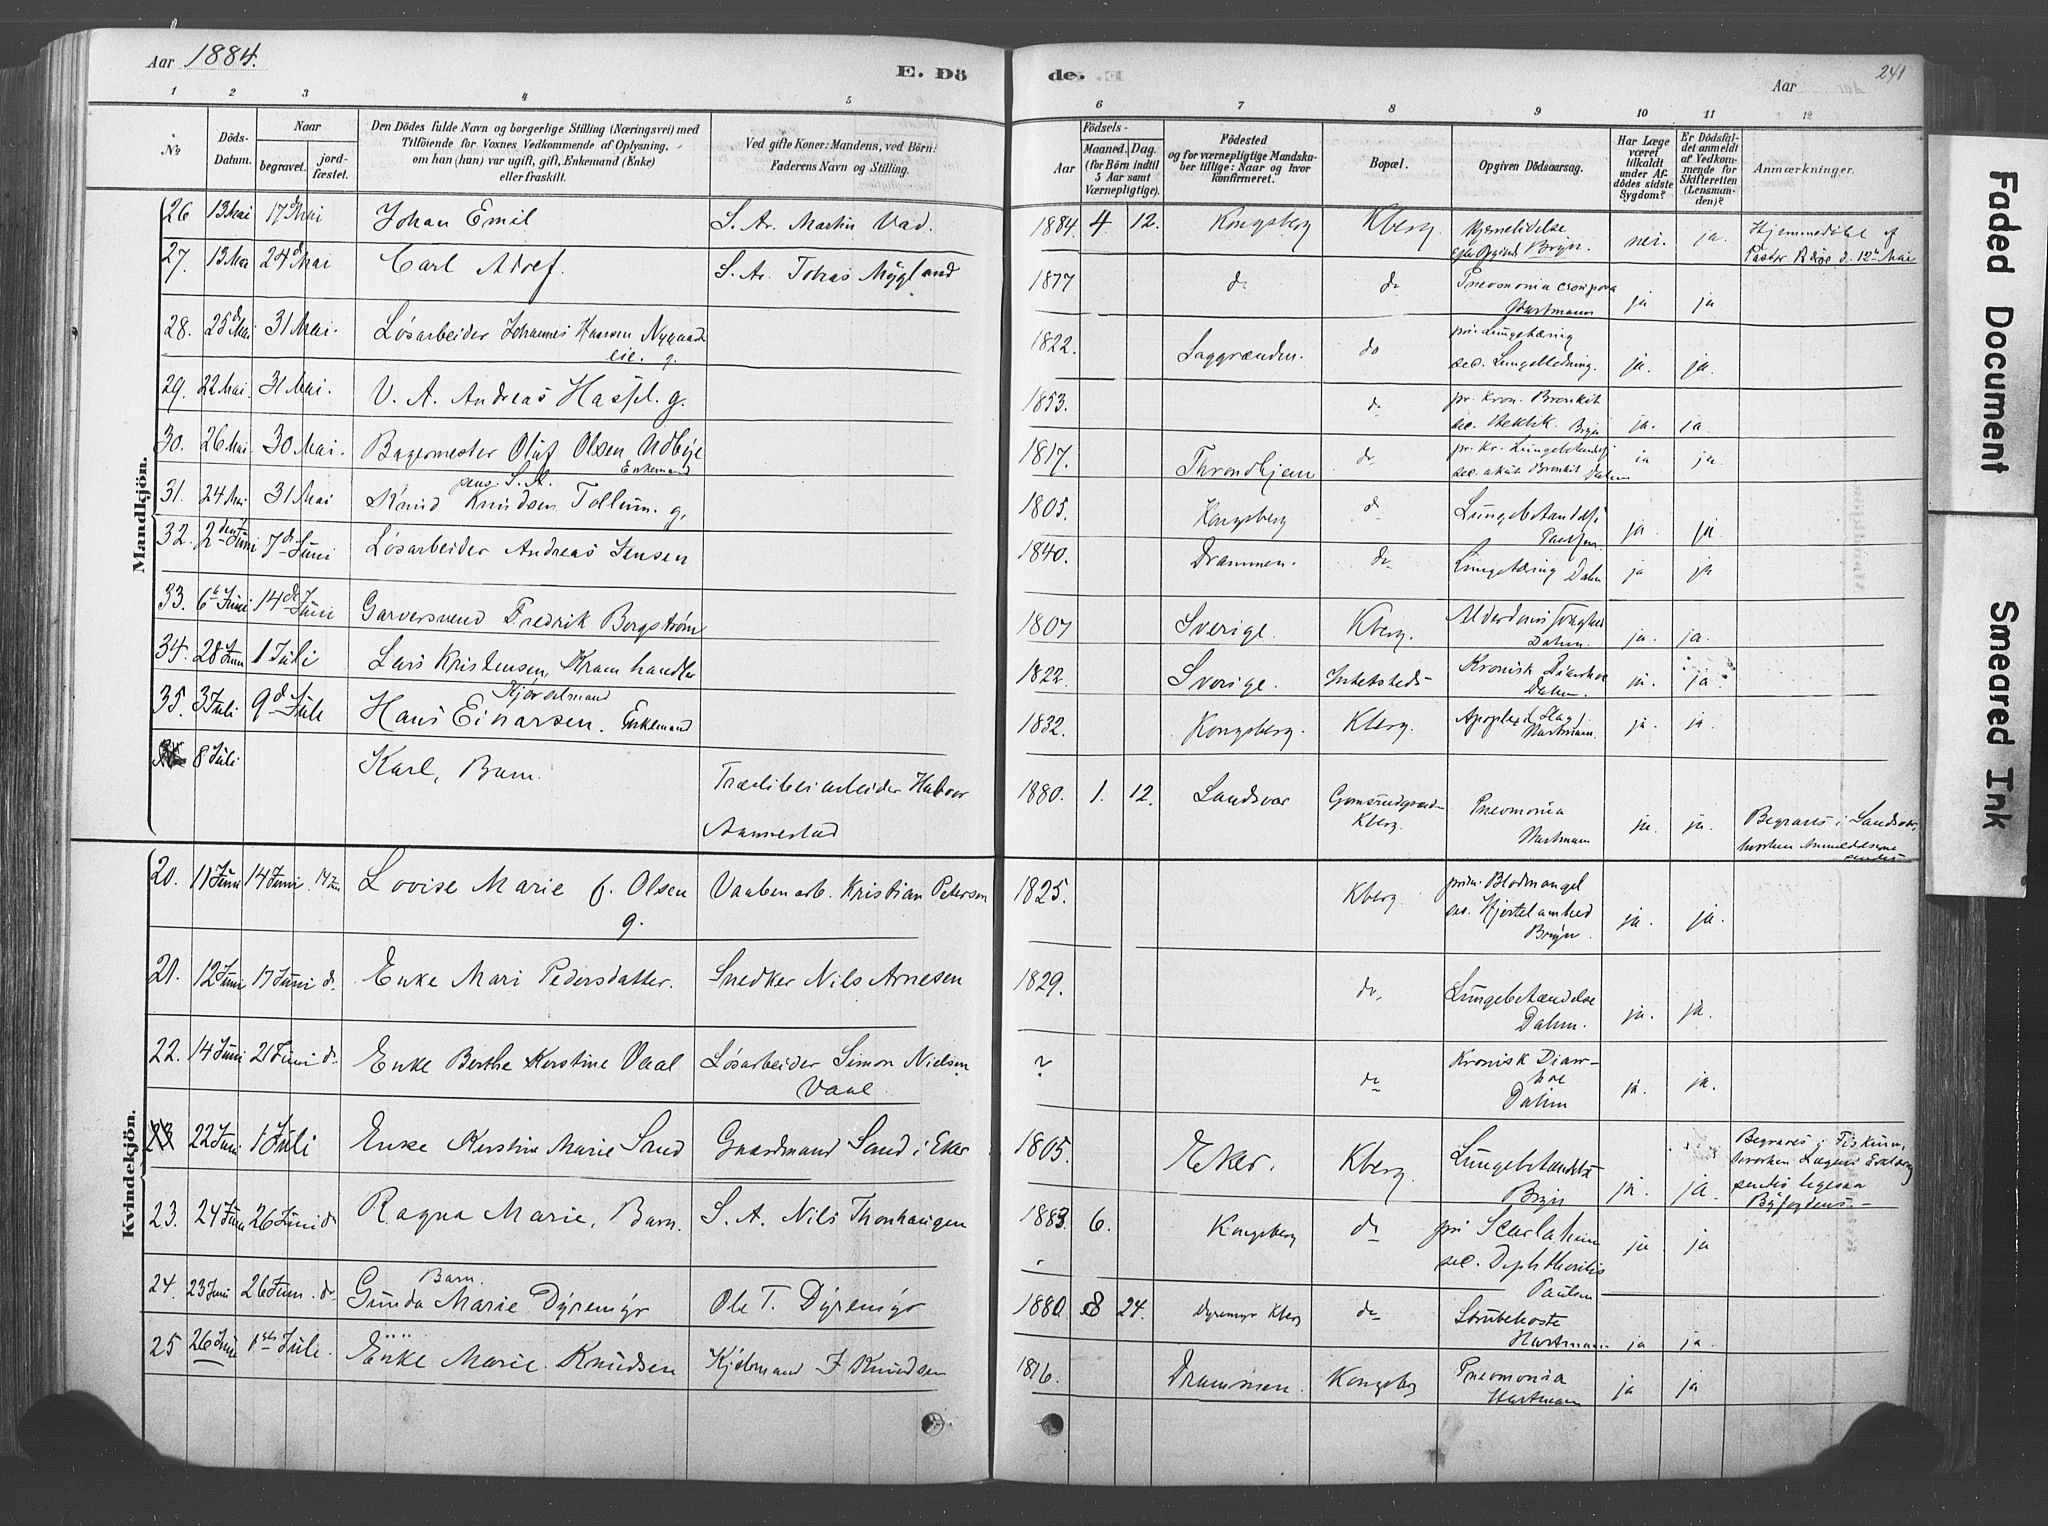 Aar 1884.
E. Dö
de.
Aar
241
1 2 3 4 5
6 7 8 9 10 11 12
No
Döds-Datum.
Naar
begravet.
jord-fæstet.
Den Dödes fulde Navn og borgerlige Stilling (Næringsvei) med
Tilföiende for Voxnes Vedkommende af Oplysning.
om han (hun) var ugift, gift, Enkemand (Enke)
eller fraskilt.
Ved gifte Koner: Mandens, ved Börn:
Faderens Navn og Stilling.
Födsels-
Aar
Maaned. Dag.
(for Börn indtil
5 Aar samt
Værnepligtige).
Födested
og for værnepligtige Mandska-
ber tillige: Naar og hvor
konfirmeret.
Bopæl.
Opgiven Dödsaarsag.
Har Læge
været
tilkaldt
under Af-
dödes sidste
Sygdom?
Er Dödsfal-
det anmeldt
af Vedkom-
mende for
Skifteretten
(Lensman-
den)?
Anmærkninger.
Mandkjön.
26 13 Mai 17 Mai Johan Emil S. Ar. Martin Vad. 1884. 4 12. Kongsberg Kberg. Bryn. nei. ja. Hjemmedöbt af
Pastor d. 12 Mai
27. 13 Mai 24 Mai Carl S. Ar. Tobias Mÿgland 1877 do do Pnevmonia crouposa
Hartmann ja ja
28. 25 Mai 31 Mai. Løsarbeider Johannes Hansen Nygaards
eie. g. 1822. Saggrænden. do pri. Lungetæring
sec. Lungeblødning. ja. ja.
29. 22 Mai. 31 Mai. V. A. Andreas Hassel. g. 1853. do pr. Kron. Bronkit
sec. Hektik. Bryn ja. ja.
30. 26 Mai 30 Mai. Bagermester Oluf Olsen Udbye
Enkemand 1817. Throndhjem do pr. Kr. Lungebetendelse
sec. akut Bronkit Dahm ja ja.
31. 24 Mai 31 Mai pens. S. A.
Knud Knudsen Tollum. g. 1805. Kongsberg do Lungebetændelse
Paulsen ja ja.
32. 2den Juni 7d Juni Løsarbeider Andreas Jensen 1840. Drammen. do Lungetæring Dahm ja ja
33. 6 Juni 14de Juni Garversvend Fredrik Borgstrøm 1807 Sverige. Kberg. Alderdomssvaghed
Dahm. ja. ja.
34. 28 Juni 1 Juli Lars Kristensen, Kramhandler 1822. Sverige. Intetsteds Kronisk Diarrhoe
Dahm. ja. ja.
35. 3 Juli 9d Juli Kjørselmand
Hans Einarsen. Enkemand 1832. Kongsberg. Kberg. Apoplexi Slag
Hartmann. ja. ja.
8 Juli Karl, Barn. Træsliberiarbeider Halvor
Aannestad 1880. 1. 12. Sandsvær Gomsrudgrænden
Kberg. Pnevmonia
Hartmann ja. ja. Begraves i Sandsvær,
hvorhen Anmeldelserne
sendes
Kvindekjön.
20. 11 Juni 14 Juni. 14 Juni Lovise Marie f. Olsen
g. Vaabenarb. Kristian Petersen 1825. Kberg. prim. Blodmangel
sec. Hjertelamhed
Bryn. ja. ja.
21. 12 Juni 17 Juni do. Enke Mari Pedersdatter. Snedker Nils Arnesen 1829. do. Lungebetændelse
Dahm. ja. ja.
22. 14 Juni 21 Juni do Enke Berthe Kerstine Vaal Løsarbeider Simon Nielsen
Vaal. ? do Kronisk Diarr-
hoe
Dahm ja. ja.
23 22 Juni 1 Juli Enke Kerstine Marie Sand Gaardmand Sand i Eker 1805. Eker. Kberg. Lungebetændelse
Bryn ja. ja. Begraves i Fiskum,
hvorhen Lægens Erklæring
sendes ligesaa
Byfogdens.
23. 24 Juni 26 Juni do Ragna Marie, Barn. S. A. Nils Thonhaugen 1883. 6. Kongsberg do pri Scarlatina
sec. Diphtheritis
Paulsen ja ja
24. 23 Juni 26 Juni. do Barn.
Gunda Marie Dÿremÿr Ole T. Dÿremÿr 1880. 8 24. Dyremyr Kberg do Strubehoste
Hartmann ja ja.
25 26 Juni 1ste Juli. Enke Marie Knudsen Kjøbmand F Knudsen 1816. Drammen. Kongsberg Pnevmonia
Hartmann ja ja
Faded Document
Smeared Ink